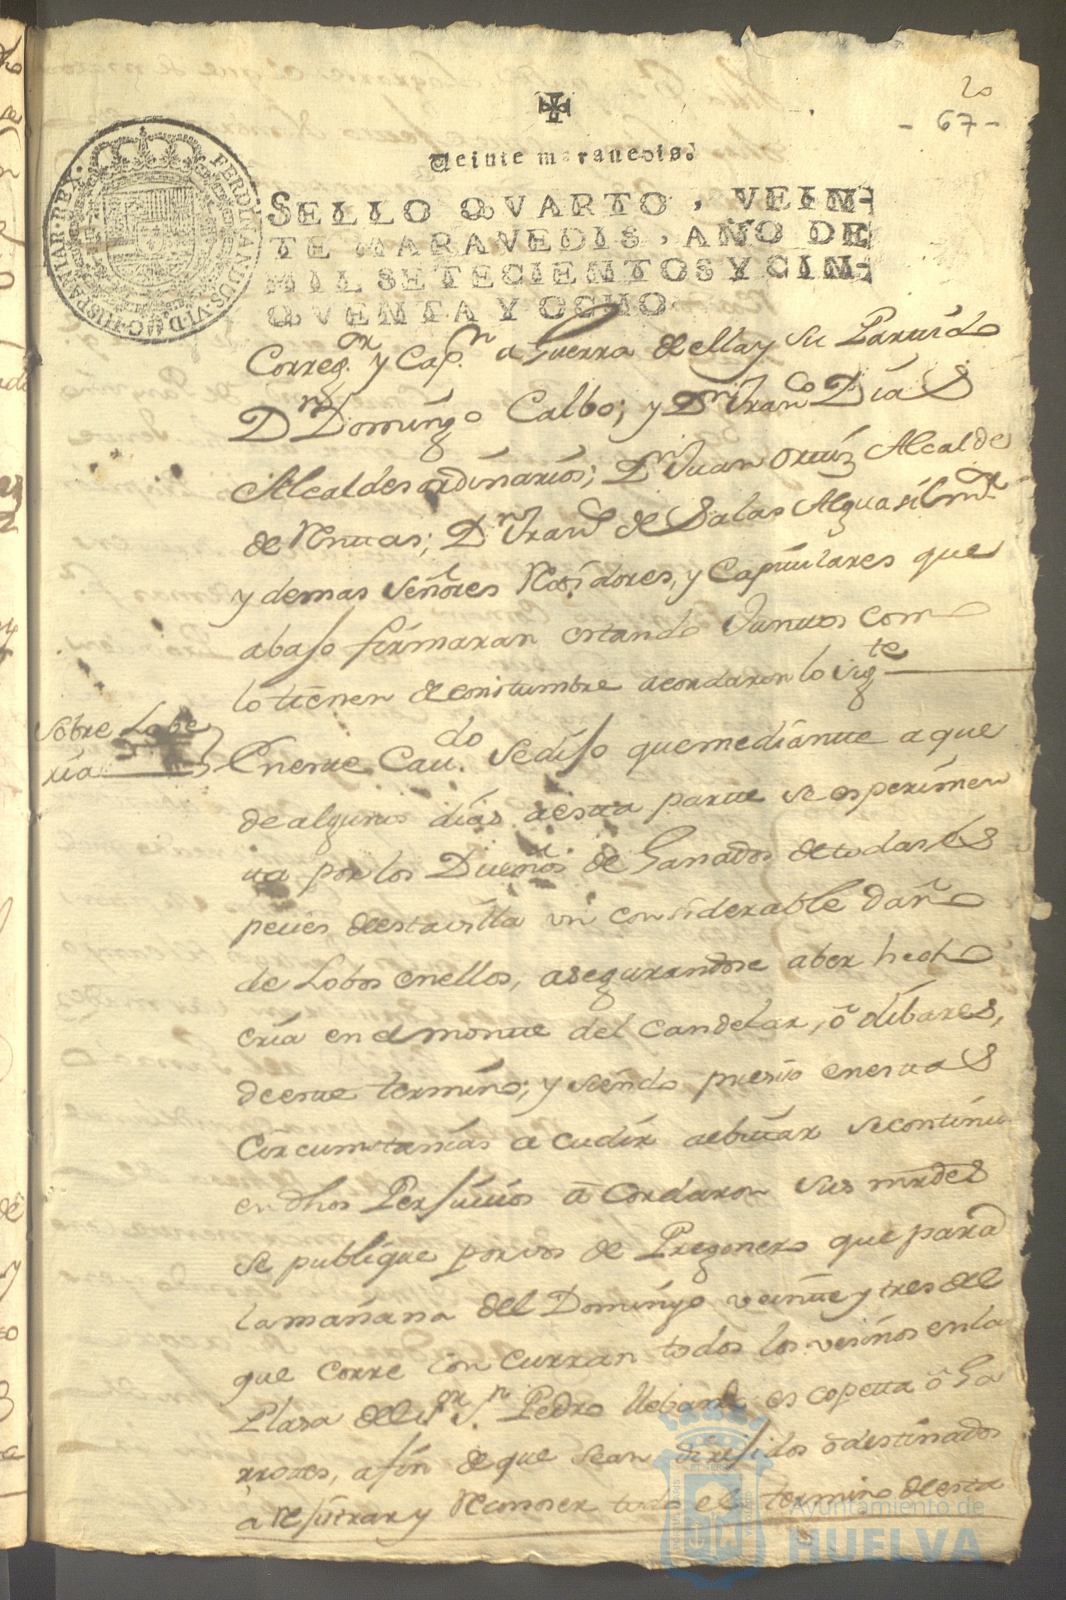 20
- 67 -
Veinte maravedis.
SELLO QVARTO, VEIN-
TE MARAVEDIS, AÑO DE
MIL SETECIENTOS Y CIN-
QVENTA Y OCHO
FERDINANDUS·VI·D·G·HISPANIAR·REX
Correg.or y Cap.n a Guerra de ella y su Partido
Dn Domingo Calbo; y Dn Franco Dias
Alcaldes ordinarios; Dn Juan Ortiz Alcalde
de Dn Franco de Salas Alguasil mr
y demas Señores Rexidores, y Capitulares que
abajo firmaran estando Juntos como
lo tienen de constumbre acordaron lo sigte
Sobre Lobe
ria
En este Cavdo se dijo que mediante a que
de algunos dias a esta parte se esperimen
ta por los Dueños de Ganados de todas es
pecies de esta villa un considerable daño
de Lobos en ellos, asegurandose aber hecho
cria en el monte del Candelar, ó olibares,
de este termino; y siendo presiso en estas
Circumstancias acudir a ebitar se continu
en dhos Perjuicios acordaron sus mrdes
se publique por vos de Pregonero que para
la mañana del Domingo veinte y tres del
que corre concurran todos los vesinos en la
Plasa del Sor Sn Pedro llebando escopetta ó Ga
rrotes, a fin de que sean dirijidos o destinados
a rejistrar y Reconoser todo el termino de esta
Ayuntamiento de
HUELVA